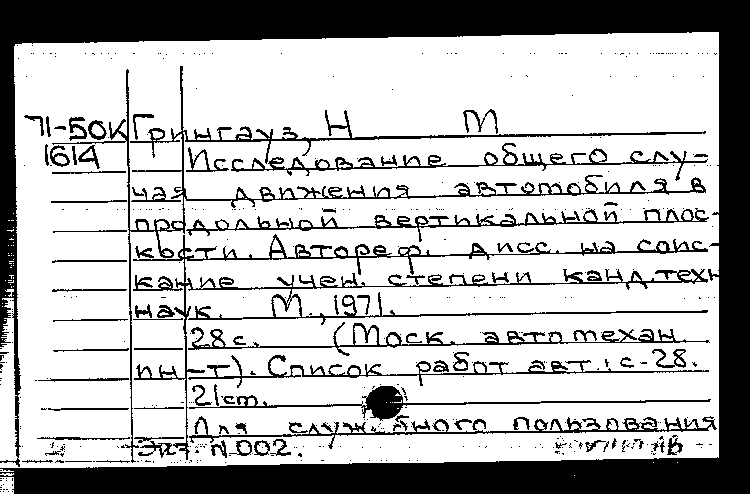 71-50К Грингауз, Н М
1614 Исследование общего слу=
чая движения автомобиля в
продольной вертикальной плос-
кости. Автореф. дисс. на соис-
кание учен. степени канд. техн
наук. М., 1971.
28 с. (Моск. автомехан
ин-т). Список работ авт.: с-28.
21 cm.
Для служебного пользования
Экз. N 002.